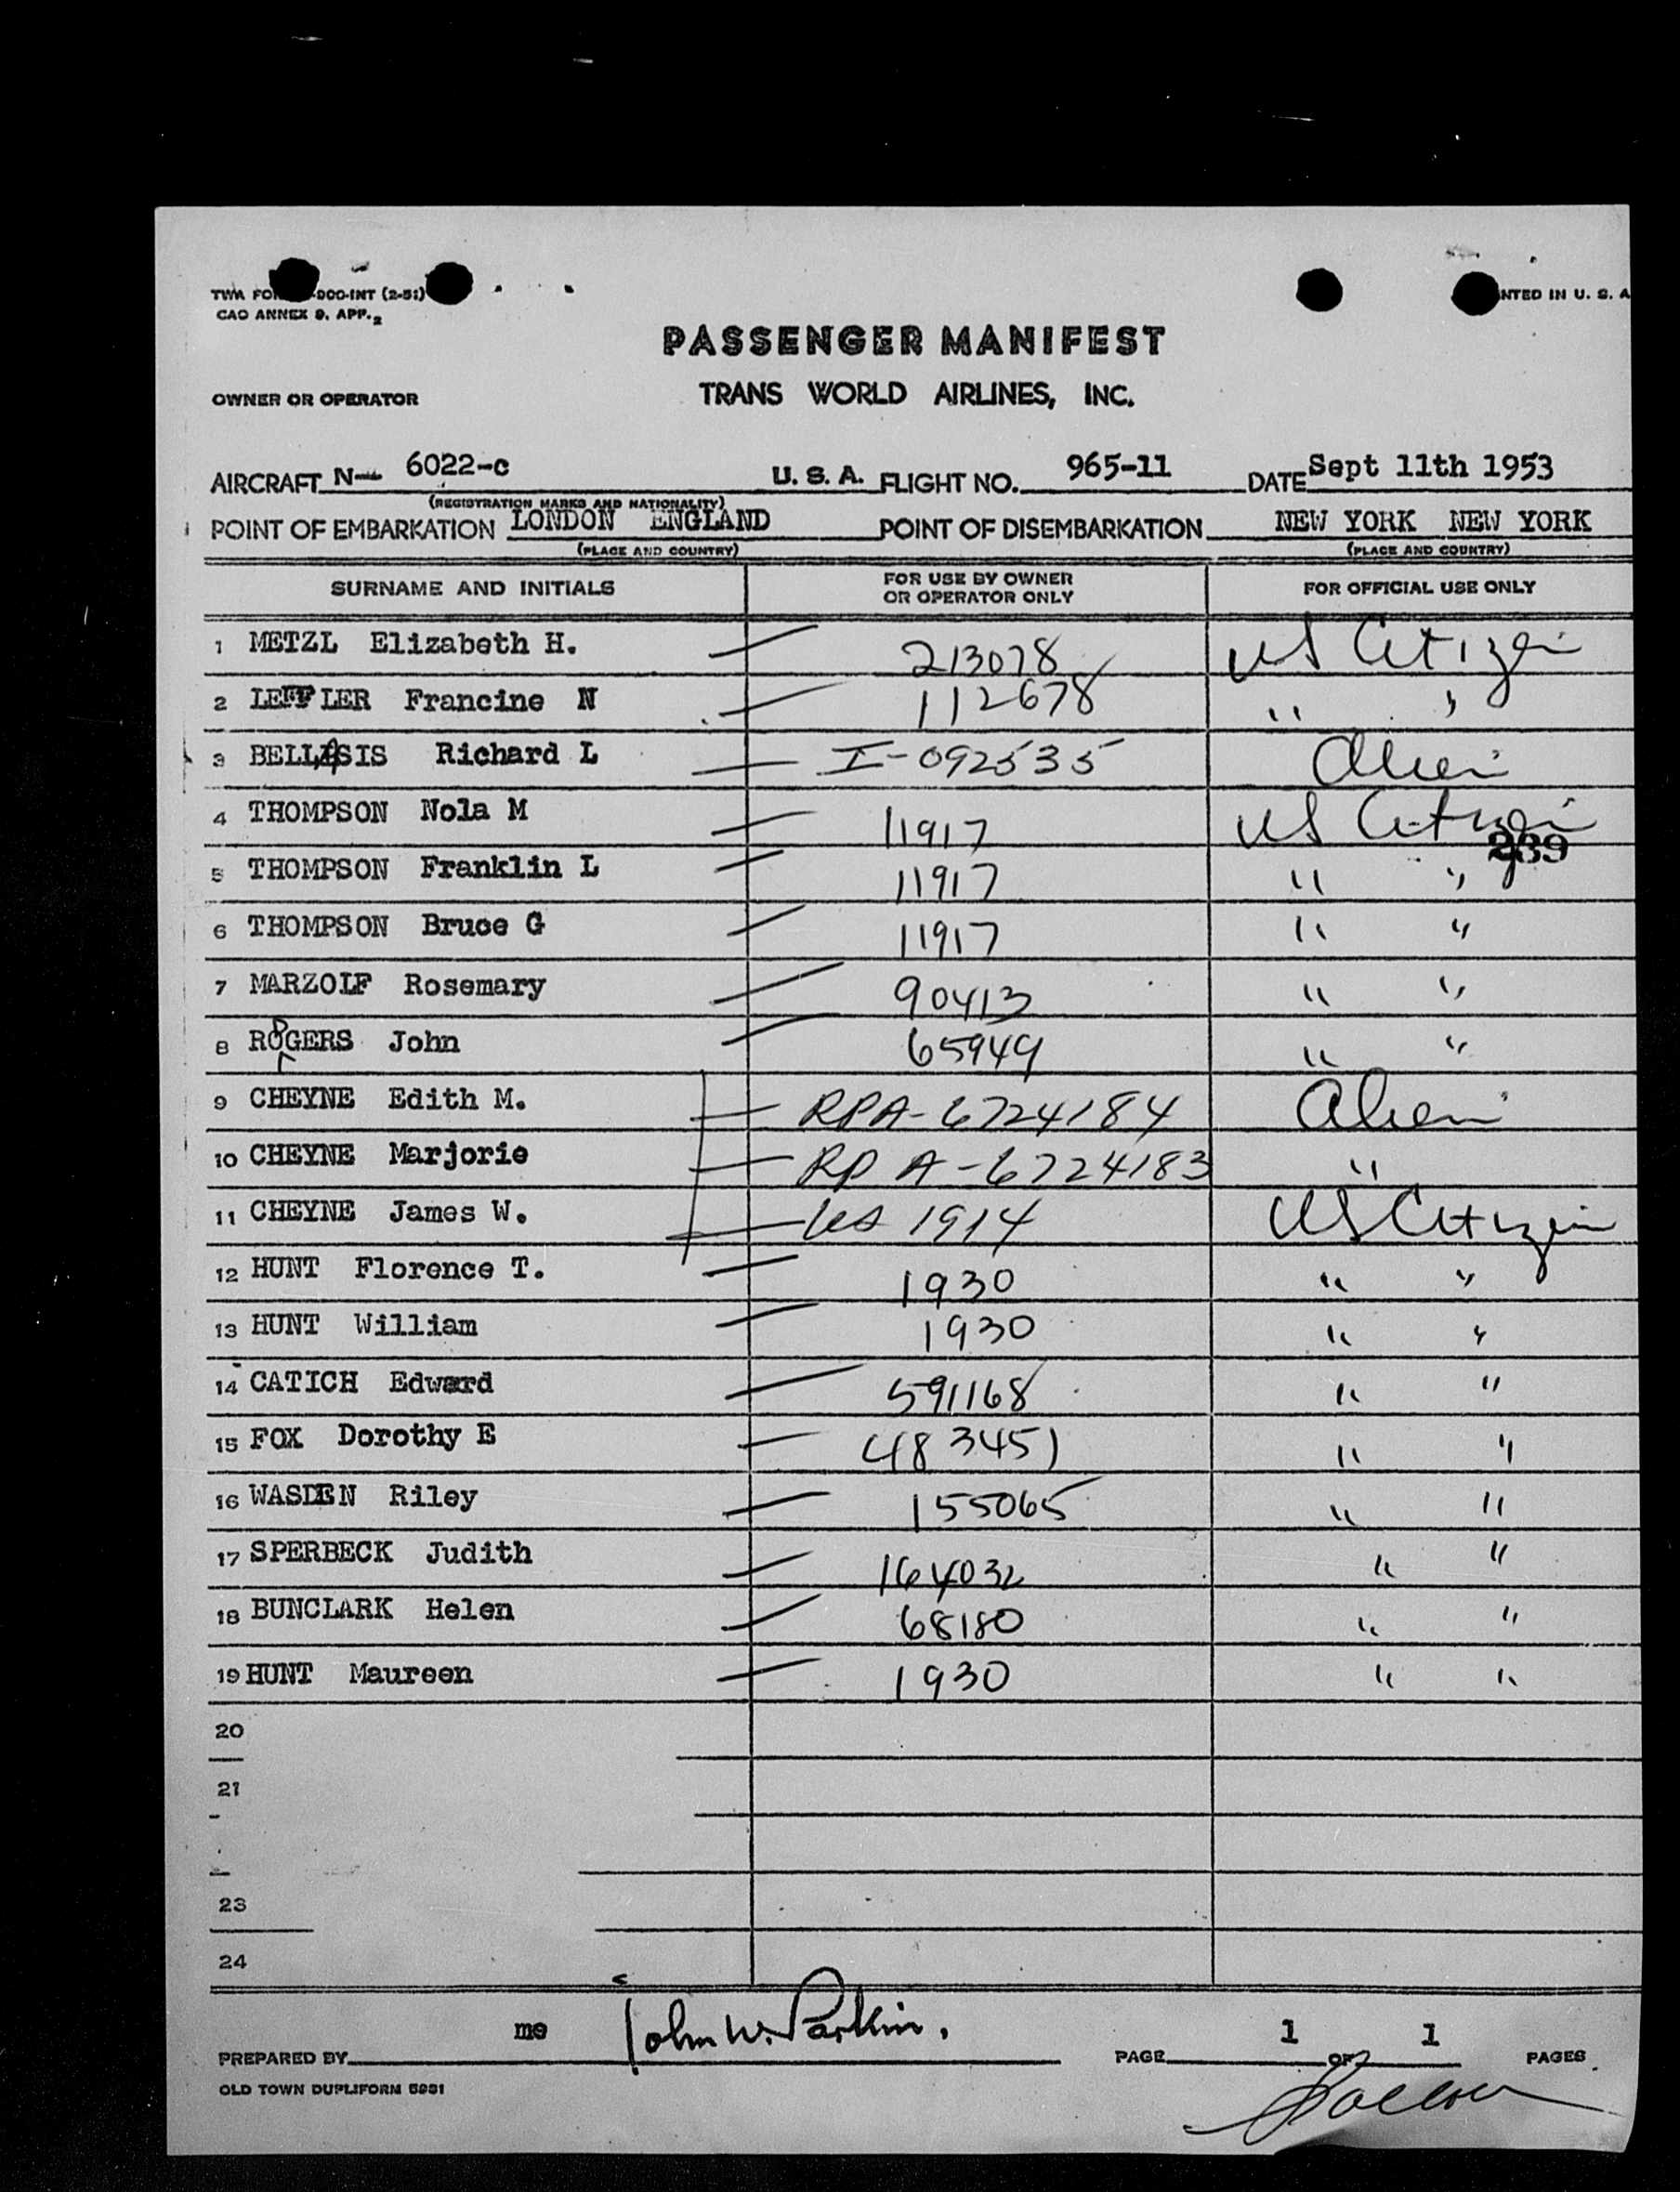 TWA FO -DOO-INT (2-51)
CAO ANNEX 9, APP.2
NTED IN U. S. A
PASSENGER MANIFEST
OWNER OR OPERATOR TRANS WORLD AIRLINES, INC.
AIRCRAFT N— 6022-c U. S. A. FLIGHT NO. 965-11 DATE Sept 11th 1953
(REGISTRATION MARKS AND NATIONALITY)
POINT OF EMBARKATION LONDON ENGLAND POINT OF DISEMBARKATION NEW YORK NEW YORK
(PLACE AND COUNTRY) (PLACE AND COUNTRY)
SURNAME AND INITIALS FOR USE BY OWNER OR OPERATOR ONLY FOR OFFICIAL USE ONLY
1 METZL Elizabeth H. 213078 US Citizen
2 LEFFLER Francine N 112678 " "
3 BELLASIS Richard L I-092535 Alien
4 THOMPSON Nola M 11917 US Citizen
239
5 THOMPSON Franklin L 11917 " "
6 THOMPSON Bruce G 11917 " "
7 MARZOLF Rosemary 90413 " "
8 RODGERS John 65949 " "
9 CHEYNE Edith M. RPA-6724184 Alien
10 CHEYNE Marjorie RP A-6724183 "
11 CHEYNE James W. US 1914 US Citizen
12 HUNT Florence T. 1930 " "
13 HUNT William 1930 " "
14 CATICH Edward 591168 " "
15 FOX Dorothy E 483451 " "
16 WASDEN Riley 155065 " "
17 SPERBECK Judith 164032 " "
18 BUNCLARK Helen 68180 " "
19 HUNT Maureen 1930 " "
20
21
23
24
PREPARED BY mo John W. Parkin. PAGE 1 OF 1 PAGES
OLD TOWN DUPLIFORM 5931